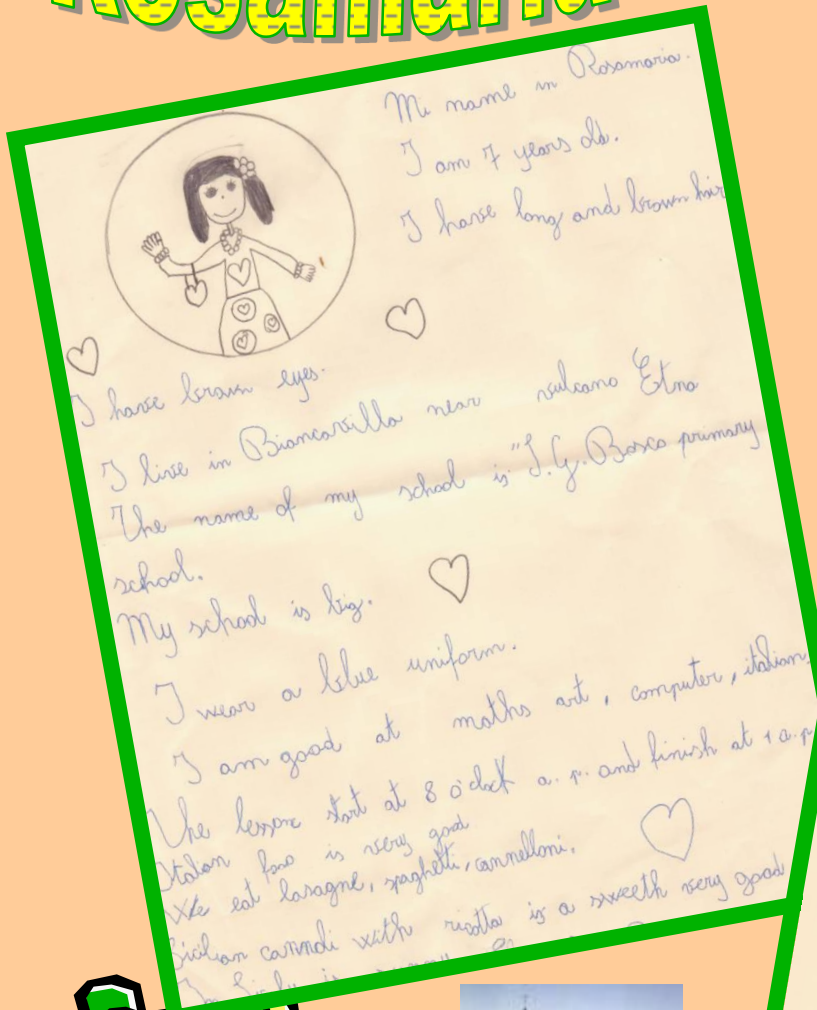 Rosamaria
Mi name in Rosamaria.
I am 7 years old.
I have long and brown hair
I have brown eyes.
I live in Biancavilla near vulcano Etna
The name of my school is "S.G. Bosco primary
school.
My school is big.
I wear a blue uniform.
I am good at maths art, computer, italian.
The lesson start at 8 o'clock a. p. and finish at 1 a.p
Italian foo is very good
We eat lasagne, spaghetti, cannelloni.
Sicilian cannoli with ricotta is a sweeth very good
In Sicily is sunny